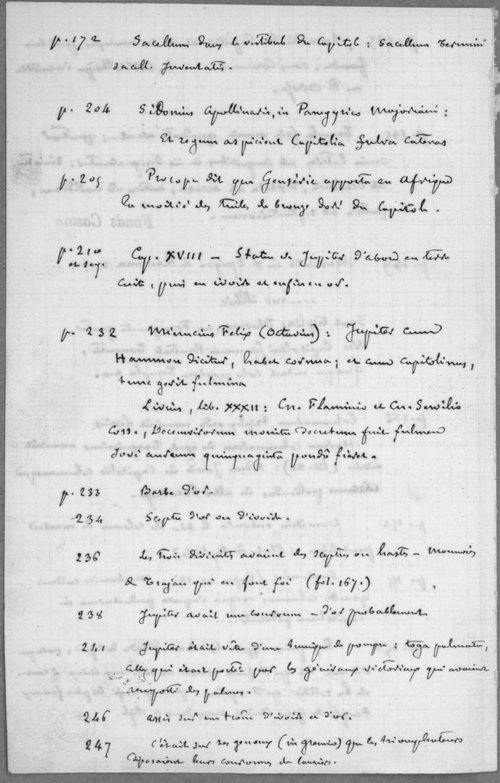 p. 172 Sacellum dans le vestibule du Capitole : Sacellum Termini
sacell. Juventatis.
p. 204 Sidonius Apollinaris, in Panegyrico Majoriani :
Et regum aspicient Capitolia fulva catenas
p. 205 Procope dit que Genséric apporta en Afrique
la moitié des tuiles de bronze doré du Capitole.
p. 210 Cap. XVIII — Statue de Jupiter d'abord en terre
et seq. cuite, puis en ivoire et enfin en or.
p. 232 Minucius Felix (Octavius) : Jupiter cum
Hammon dicitur, habet cornua ; et cum capitolinus,
tunc gerit fulmina
Livius, Lib. XXXII : Cn. Flaminio et Cn. Servilio
Coss., Decemvirorum monitu decretum fuit fulmen
Jovi aureum quinquaginta pondo fieret.
p. 233 Barbe d'or.
234 Sceptre d'or ou d'ivoire.
236 Les trois divinités avaient des sceptres ou hastes — Monnaies
de Trajan qui en font foi (fol. 167.)
238 Jupiter avait une couronne — d'or probablement.
241 Jupiter était vêtu d'une tunique de pourpre : toga palmata,
celle qui était portée par les généraux victorieux qui avaient
remporté des palmes.
246 assis sur un trône d'ivoire et d'or.
247 C'était sur ses genoux (in gremio) que les triomphateurs
déposaient leurs couronnes de lauriers.